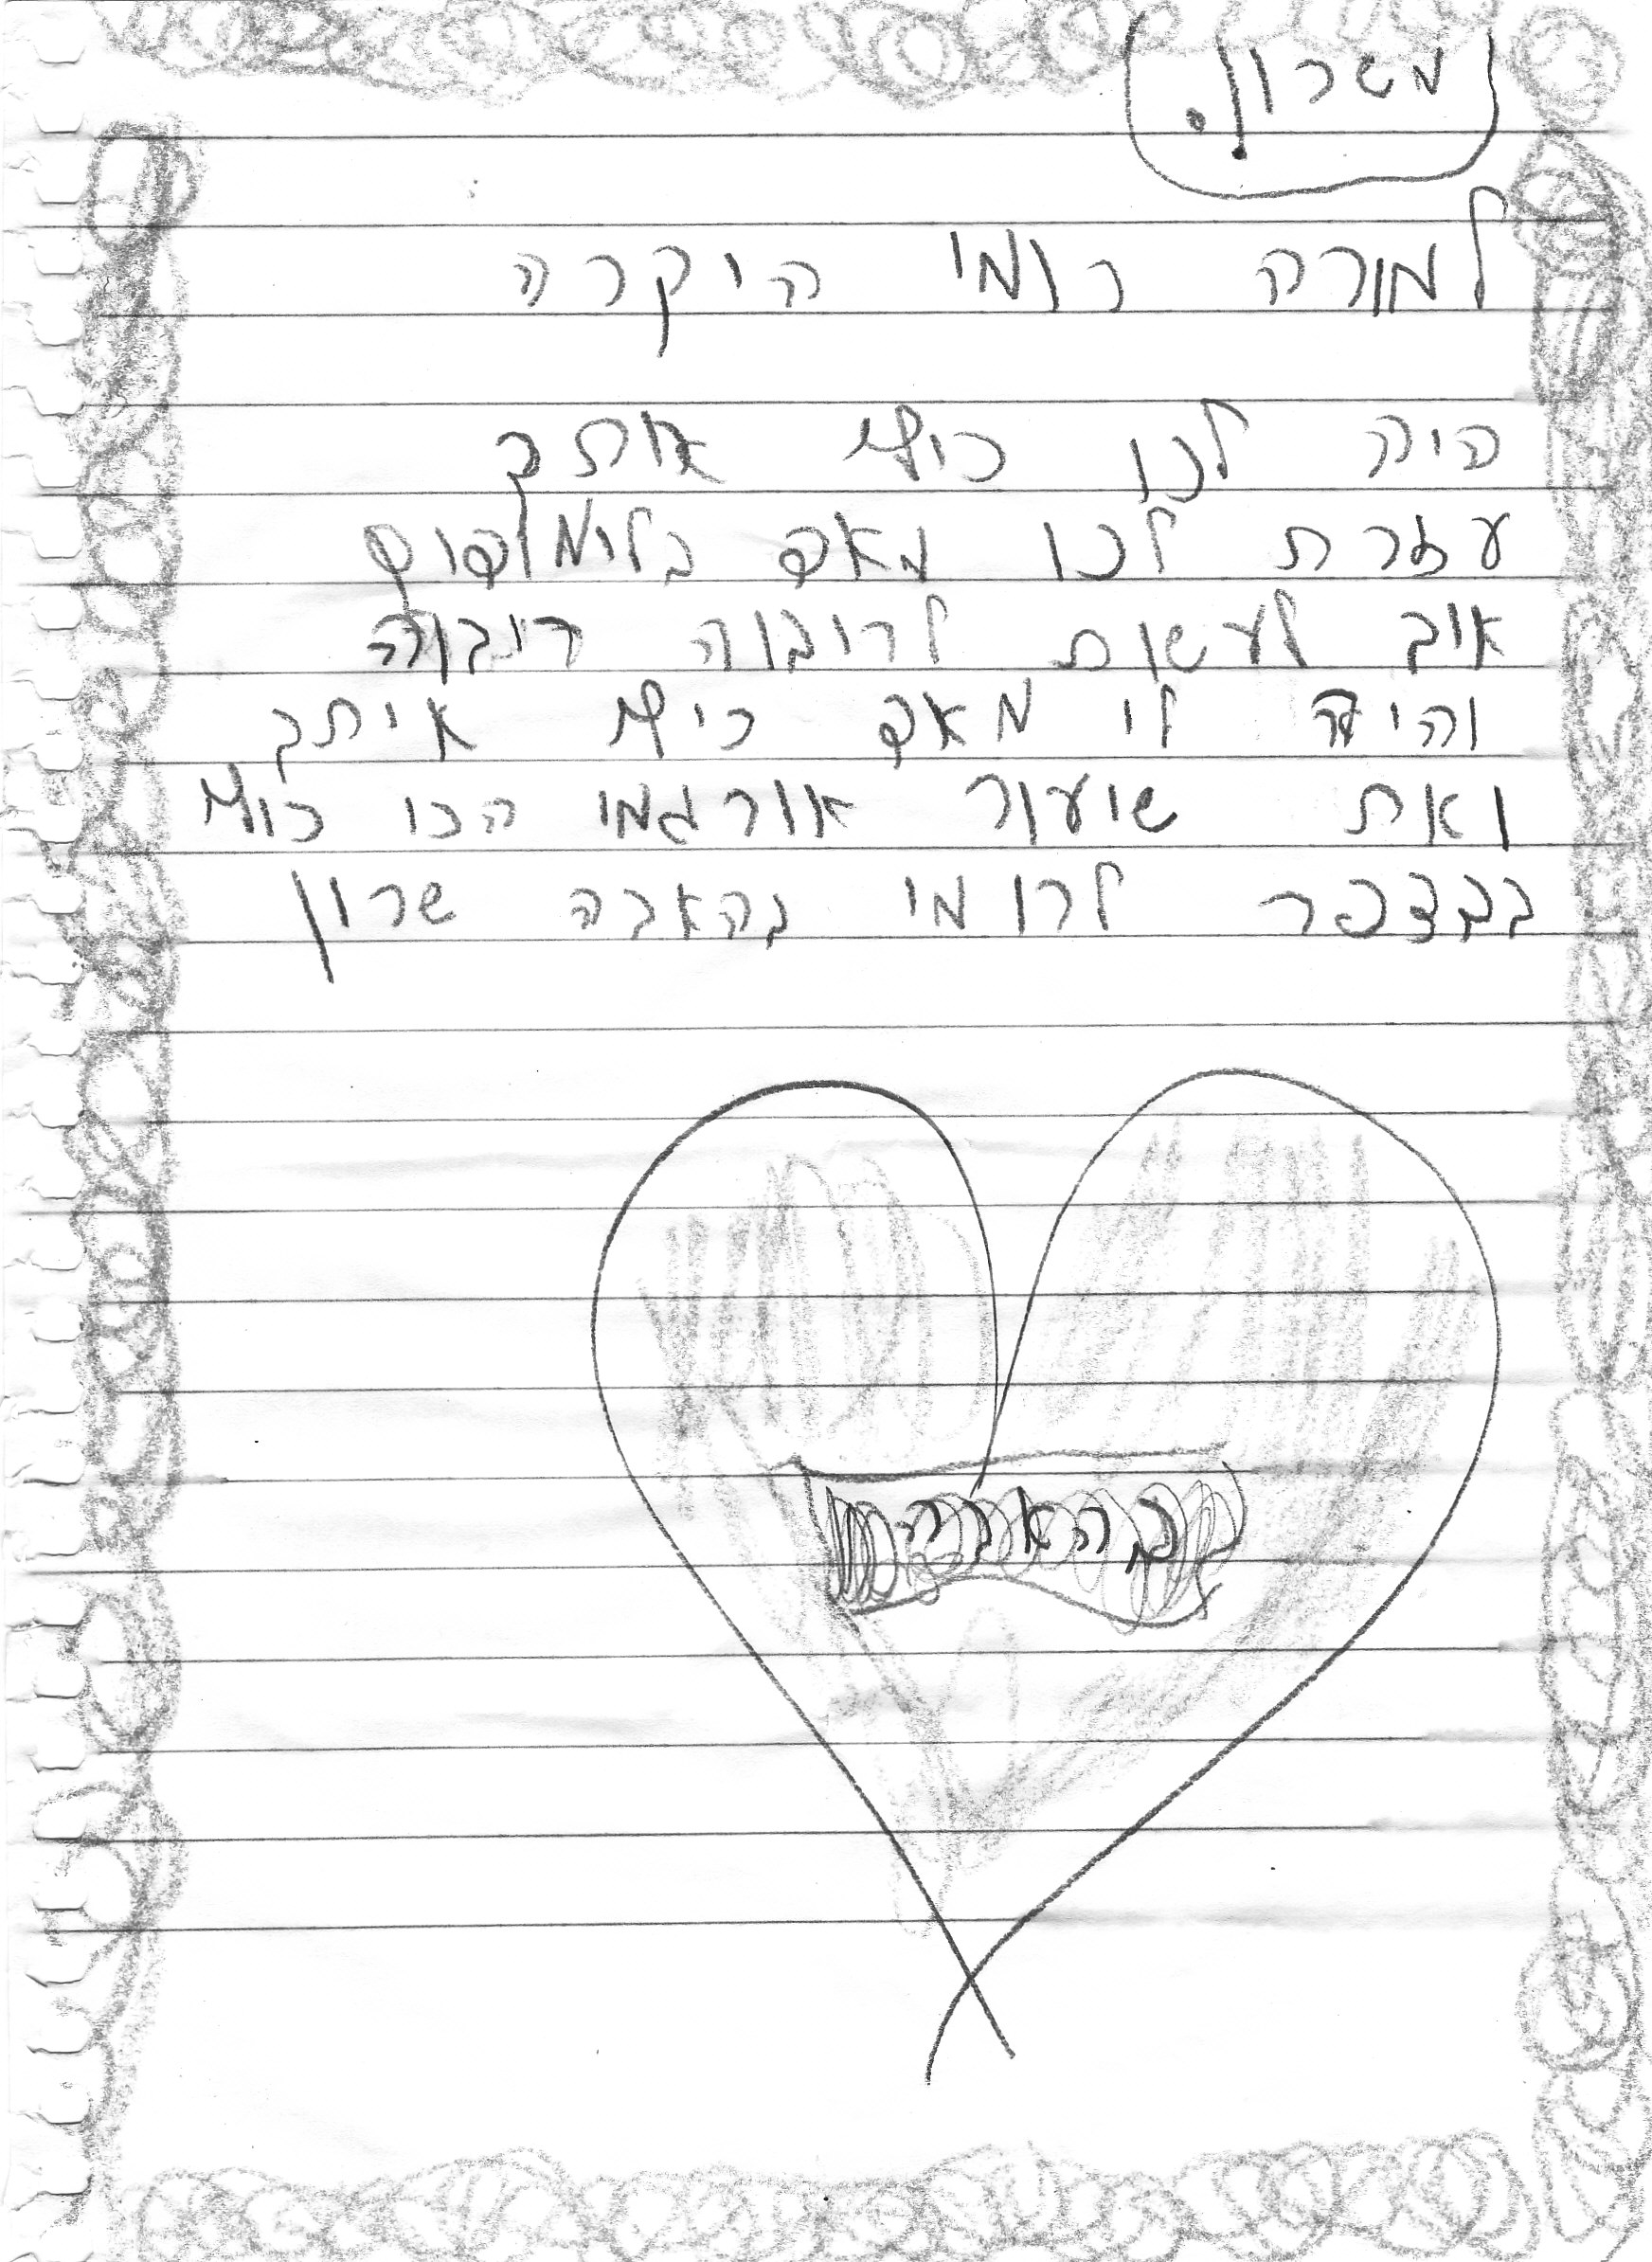 משרון.
למורה רומי היקרה
היה לנו כיף אותך
עזרת לנו מאם בלימוסים
איך לעשות לריבוה ריבוה
והיה לי מאם כיף איתך
ואת שיעור אורגמי הכו כיף
בבצפר לרומי בהאבה שרון
בהאבה